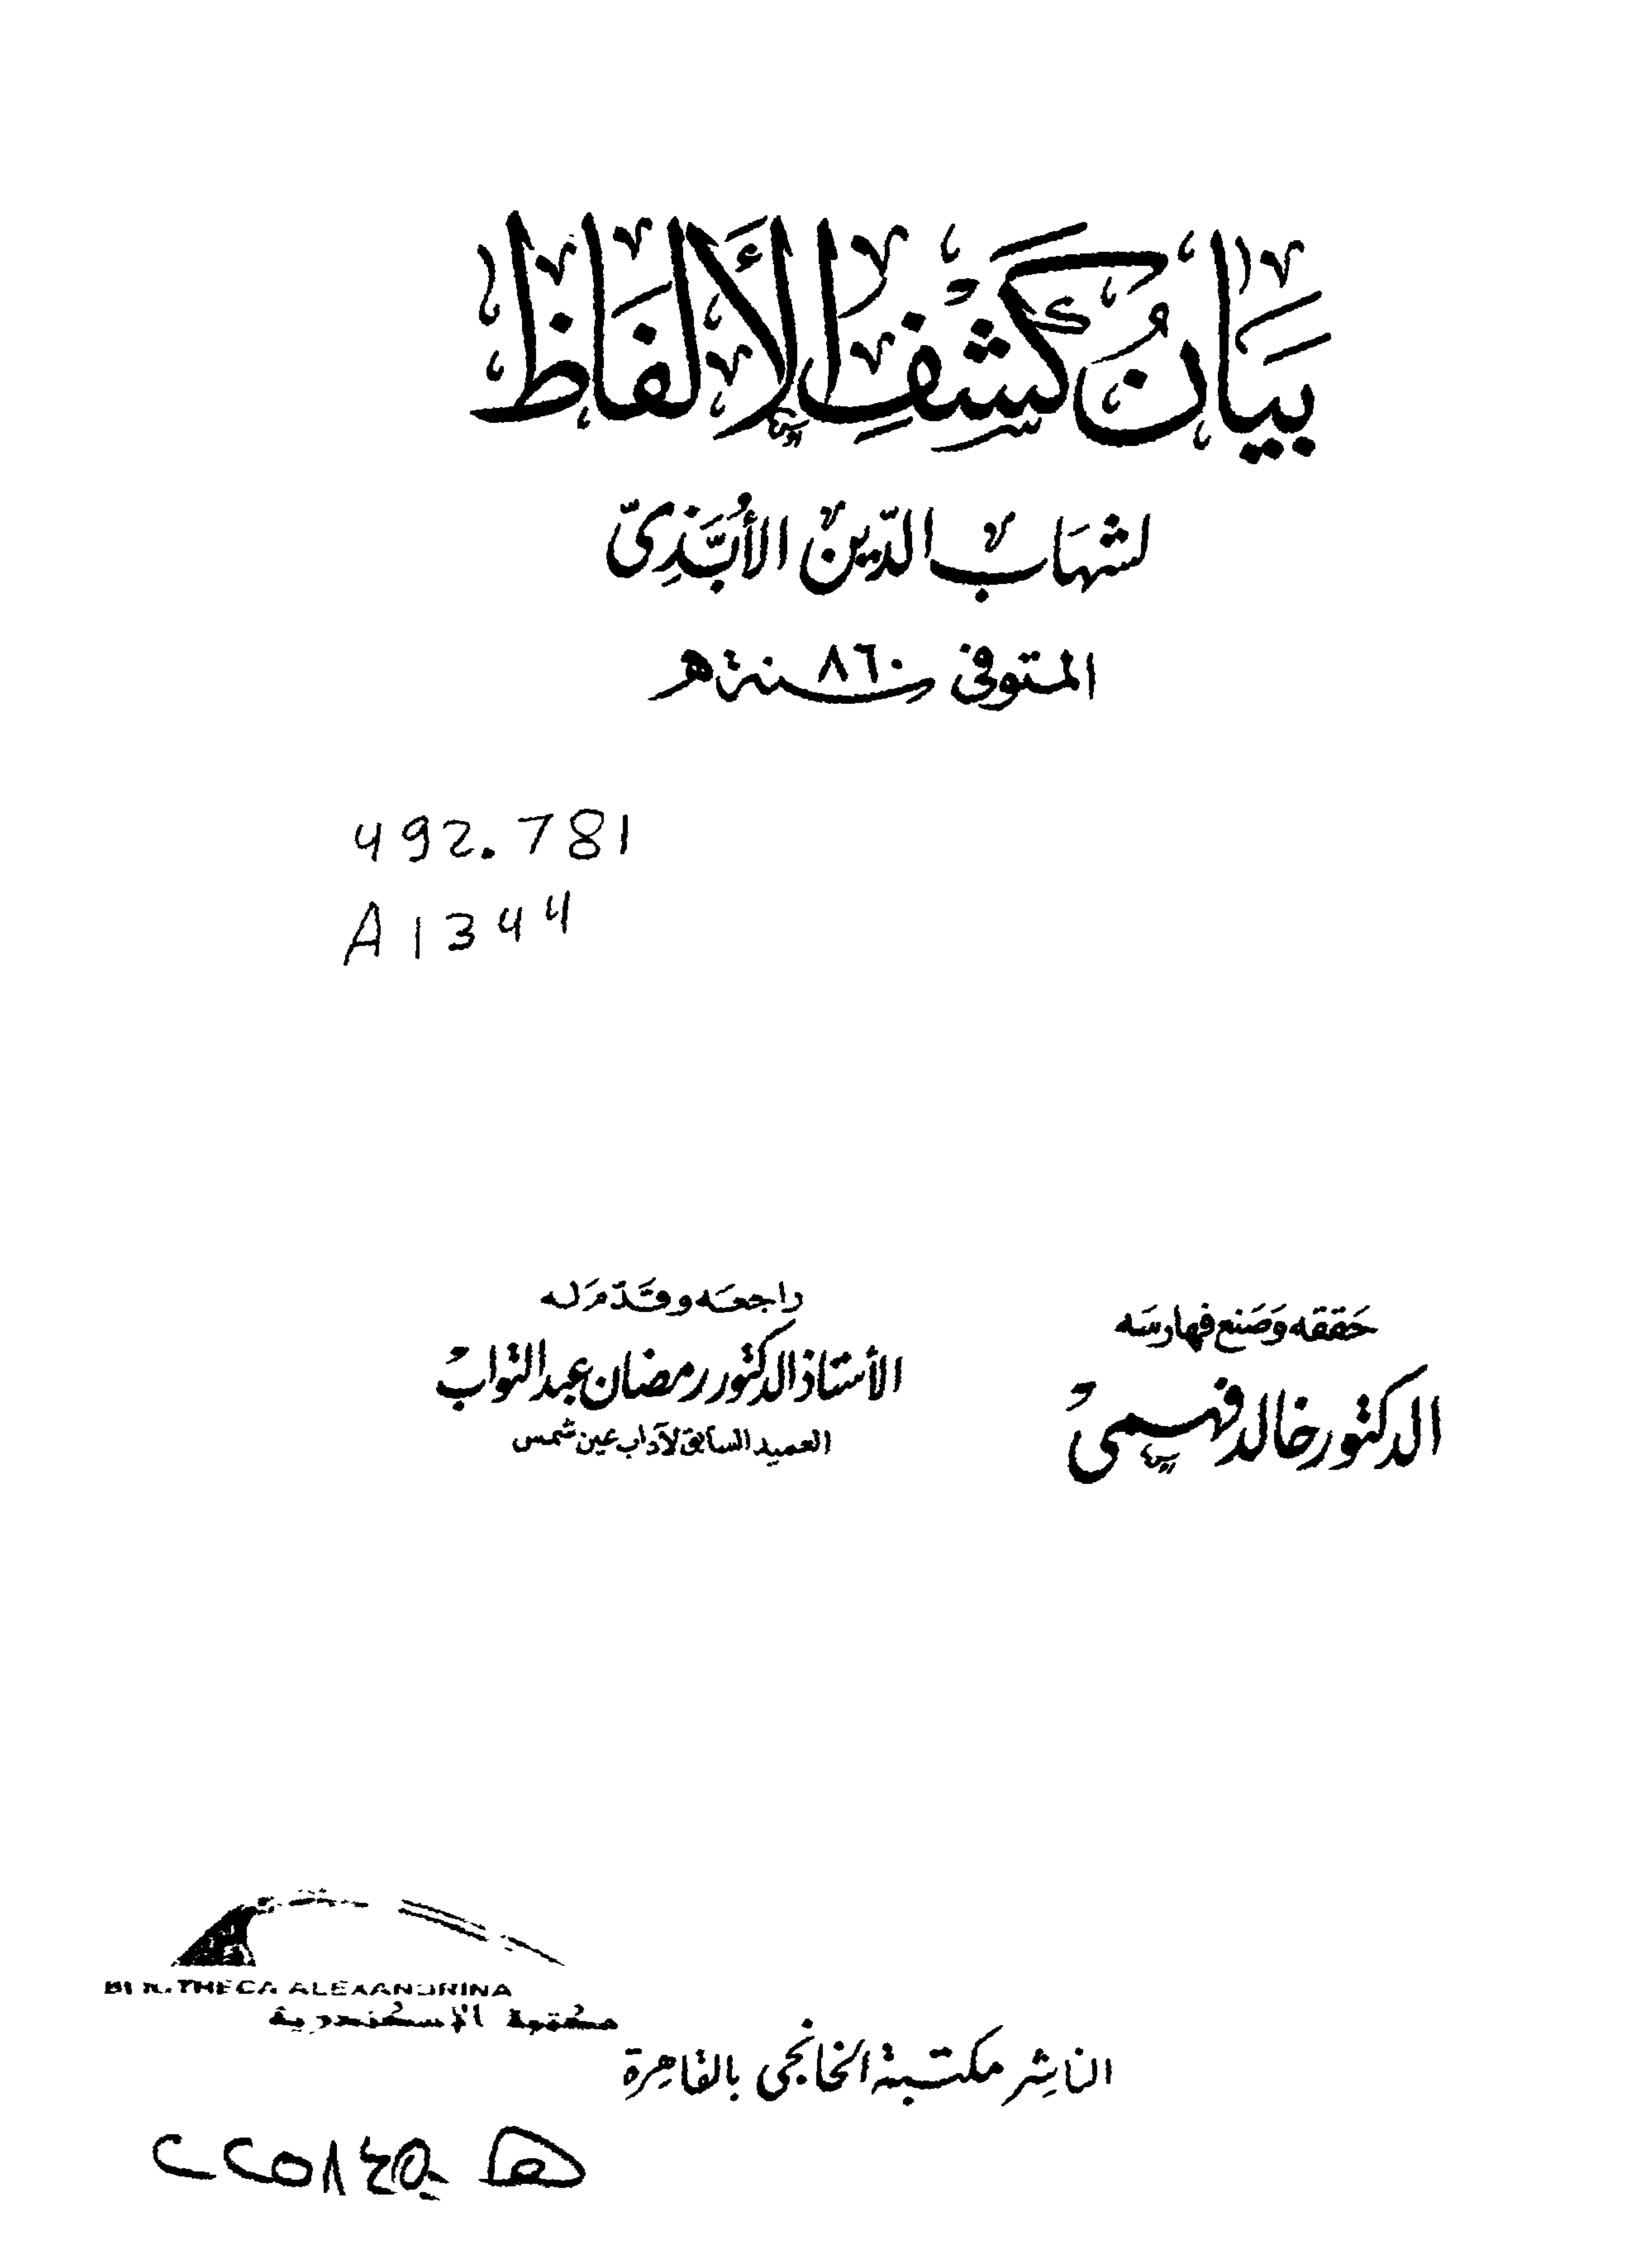 بَيَانُ كَشْفِ الأَلْفَاظ
لشهَاب الدّين الأُبَّذِىّ
المتوفى سنة ٨٦٠ هـ
492.781
A1344
حَققه وَصَنع فهارسَه
الدكتور خالد فهمى
راجعَه وقَدّمَ له
الأستاذ الدكتور رمضان عبد التواب
العميد السابق لآداب عين شمس
BIBLIOTHECA ALEXANDRINA
مكتبة الإسكندرية
الناشر مكتبة الخانجى بالقاهرة